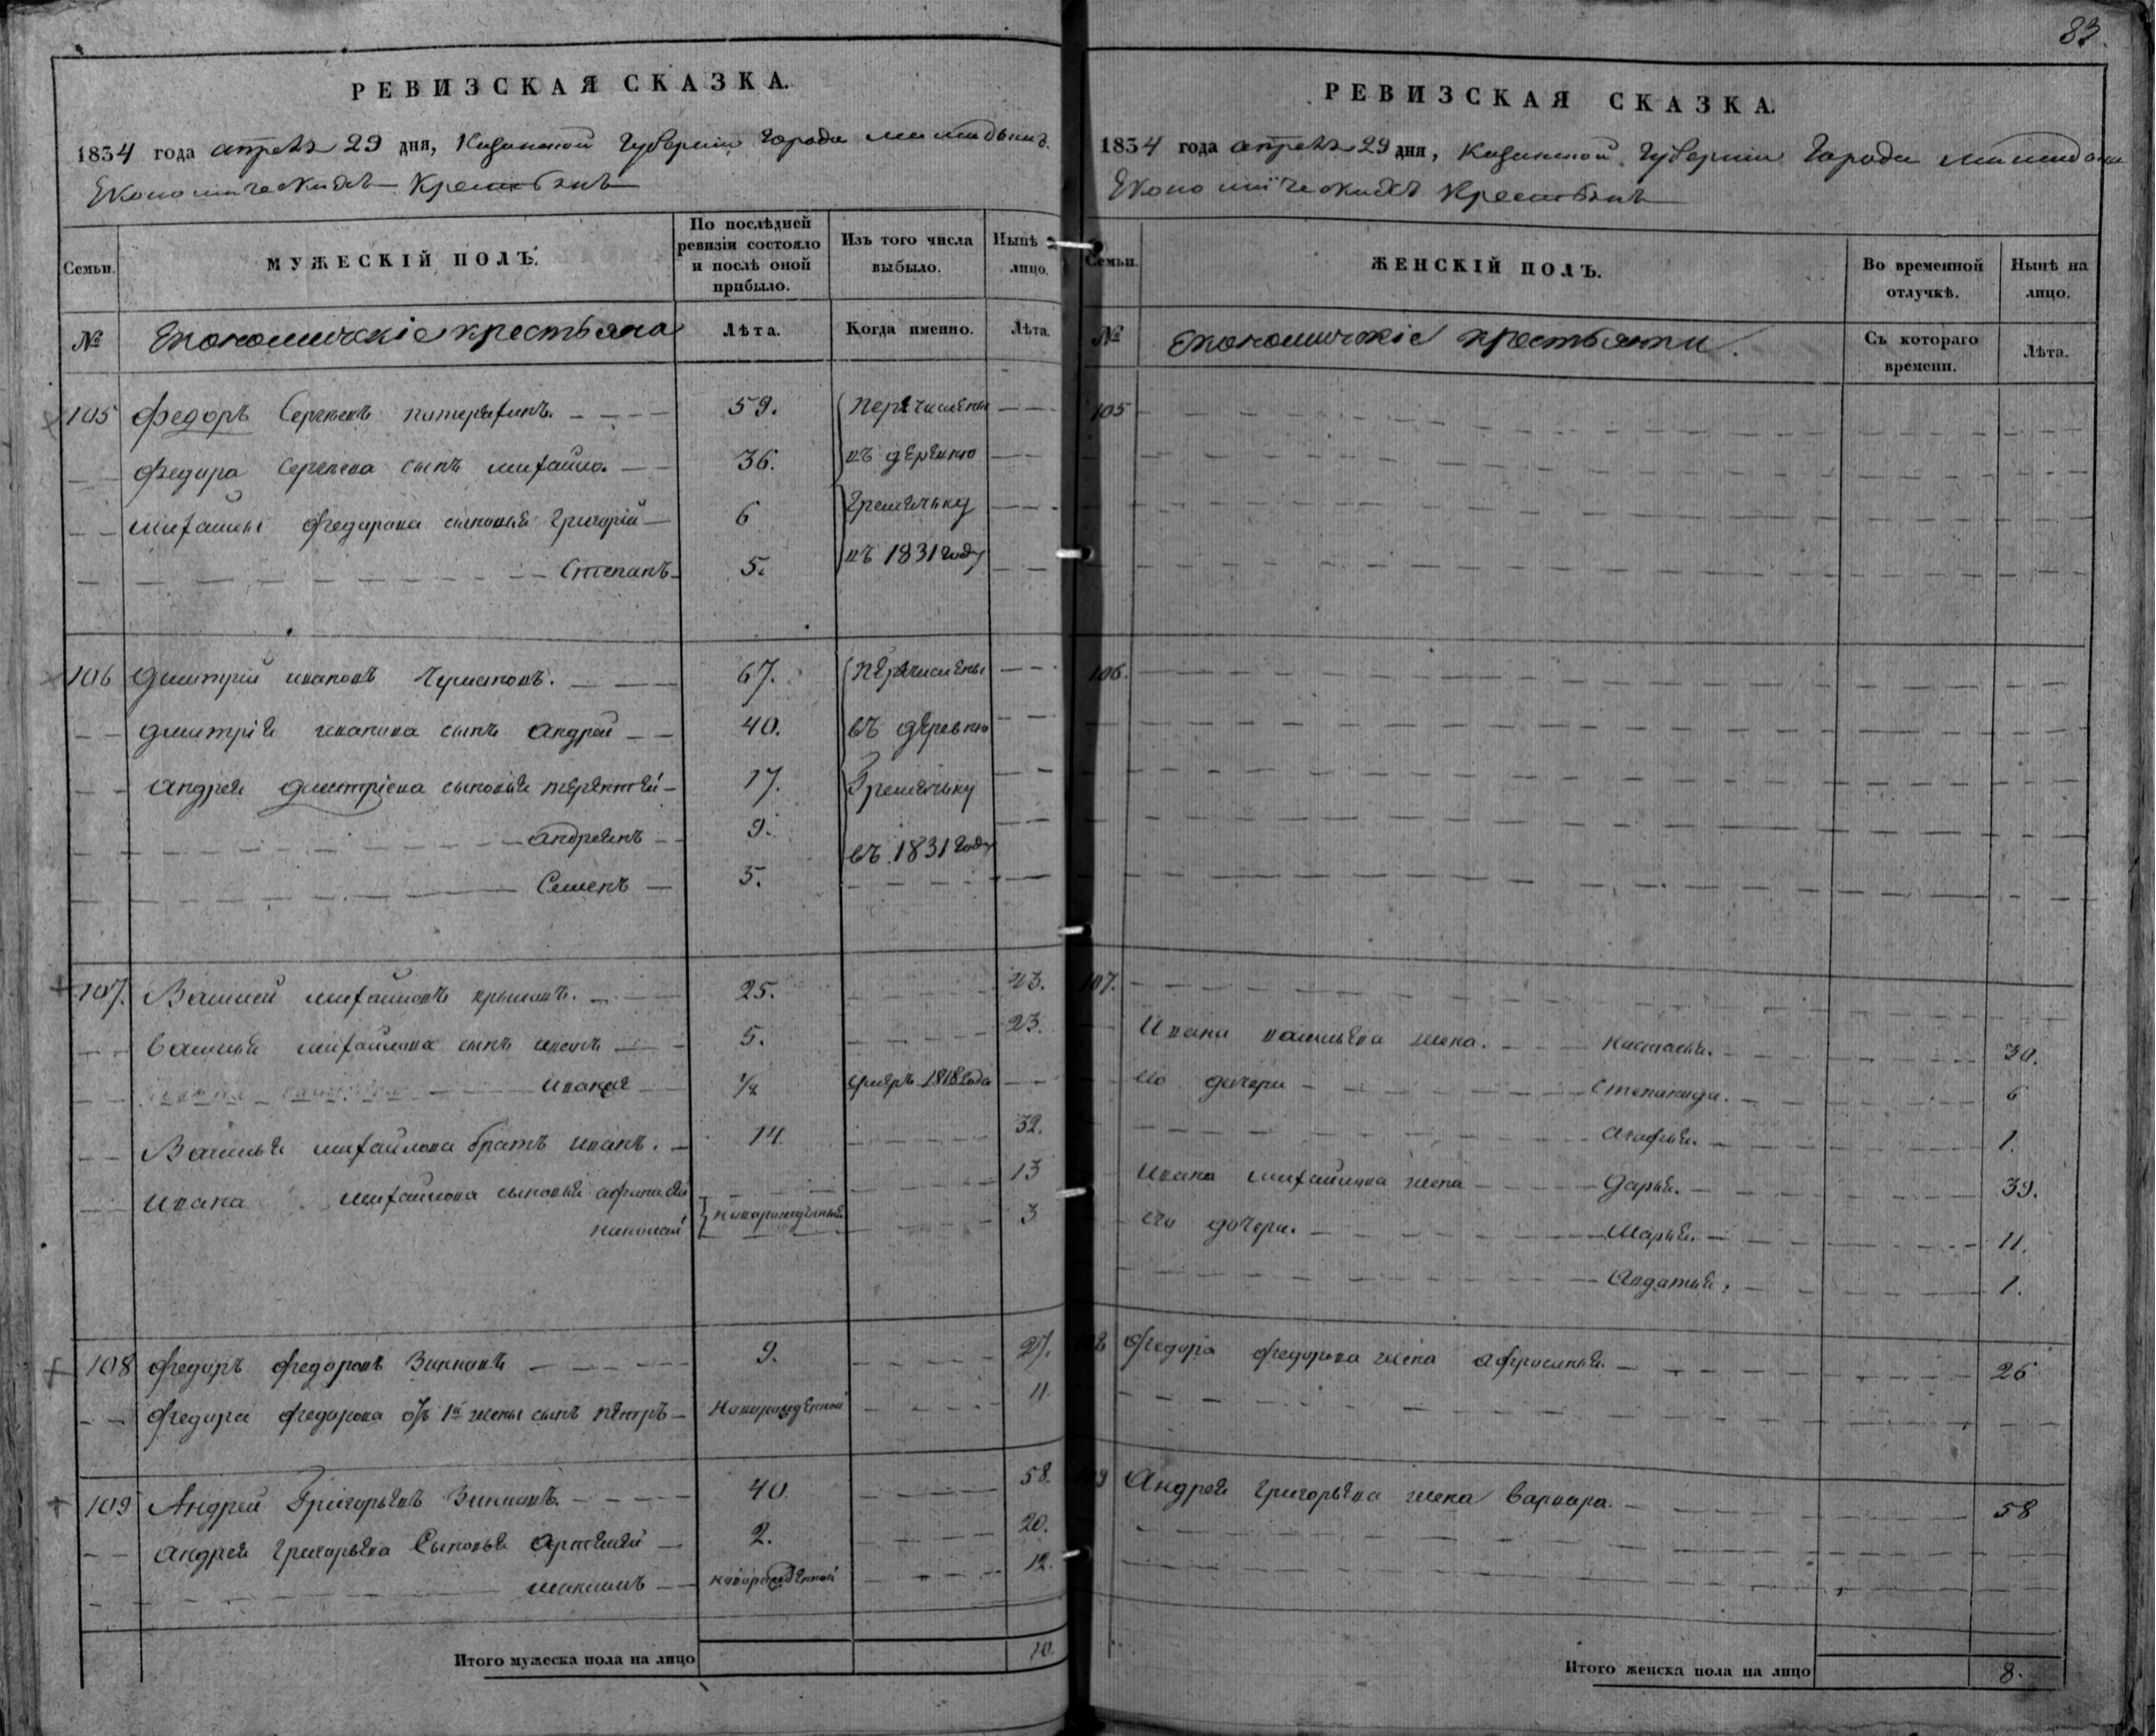 83.
РЕВИЗСКАЯ СКАЗКА.
1834 года апреля 29 дня, Казанской Губернии Города
Економическихъ Крестьянъ
Семьи.
МУЖЕСКІЙ ПОЛЪ.
По послѣдней ревизіи состояло и послѣ оной прибыло.
Изъ того числа выбыло.
Нынѣ лицо.
№ Економическіе крестьяна Лѣта. Когда именно. Лѣта.
105 Федоръ Сергеевъ — 59. Перечислены —
Федора Сергеева сынъ михайло. — 36. въ деревню —
михайлы Федарова сыновья Григорій — 6 Гремячьку —
— Степанъ — 5. въ 1831 году —
106 Дмитрій ивановъ — 67. Перечислены —
Дмитрія иванова сынъ андрей — 40. въ деревню —
андрея дмитріева сыновья терентей — 17. Гремячьку —
— андреянъ — 9. въ 1831 году —
— Семенъ — 5. —
107. Василей михайловъ крыловъ. — 25. — 43.
василья михайлова сынъ иванъ — 5. — 23.
— — 1/2 умеръ 1818 года —
Василья михайлова братъ иванъ. — 14. — 32.
ивана михайлова сыновья афанасей — 13
николай новорожденныя — 3
108 Федоръ Федоровъ Зиновъ — 9. — 27.
Федора Федарова отъ 1й жены сынъ петръ — Новорожденной — 11.
109 Андрей Григорьевъ Зиновъ. — 40. — 58.
андрея григорьева Сыновья арсеней — 2. — 20.
— максимъ — новорожденной — 12.
Итого мужеска пола на лицо 10.
РЕВИЗСКАЯ СКАЗКА.
1834 года апреля 29 дня, Казанской Губерніи Города
Економическихъ Крестьянъ
Семьи.
ЖЕНСКІЙ ПОЛЪ.
Во временной отлучкѣ.
Нынѣ на лицо.
№ Економическіе крестьянки. Съ котораго времени. Лѣта.
105 —
106. —
107. —
Ивана васильева жена. — настасья. — 30.
его дочери — степанида. — 6
— агафья. — 1.
ивана михайлова жена — дарья. — 39.
его дочери. — марья. — 11.
— авдатья. — 1.
108 Федора федорова жена афросинья. — 26
109 Андрея григорьева жена варвара. — 58
Итого женска пола на лицо 8.